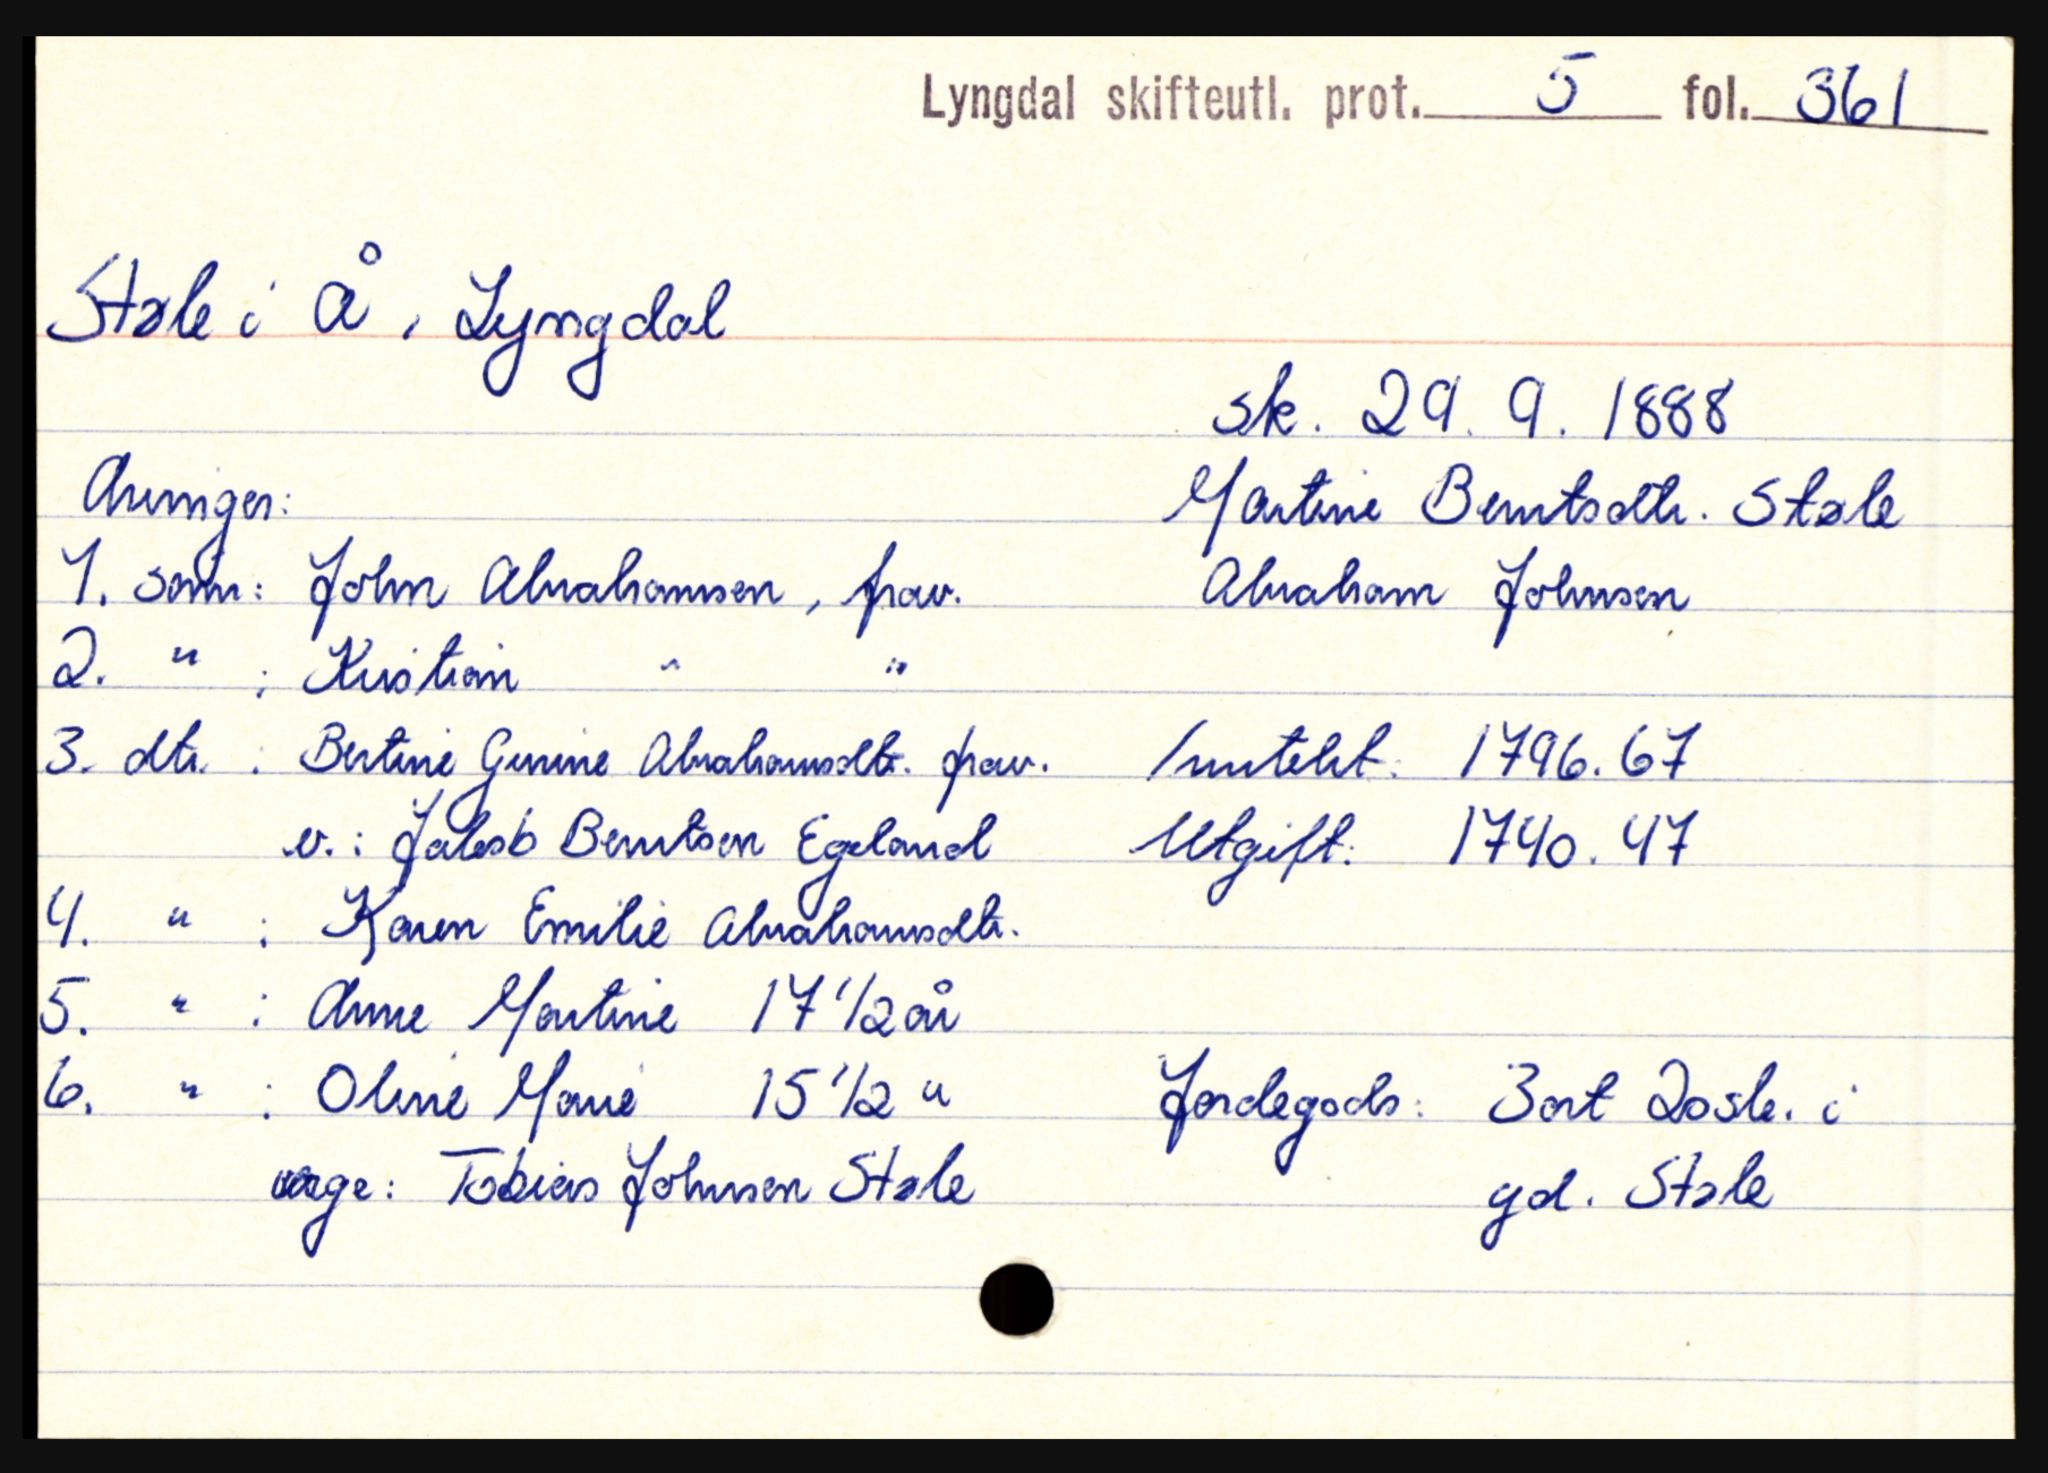 Lyngdal skifteutl. prot. 5 fol. 361
Støle i Å, Lyngdal
sk. 29. 9. 1888
Martine Berntsdtr. Støle
Abraham Johnsen
Arvinger:
1. sønn: John Abrahamsen, frav.
2. " : Kristian " "
3. dtr. : Bertine Gurine Abrahamsdtr. frav.
v.: Jakob Berntsen Egeland
4. " : Karen Emilie Abrahamsdtr.
5. " : Anne Martine 17 1/2 år
6. " : Oline Marie 15 1/2 "
verge: Tobias Johnsen Støle
Inntekt: 1796.67
Utgift: 1740.47
Jordegods: 3 ort 20 sk. i
gd. Støle